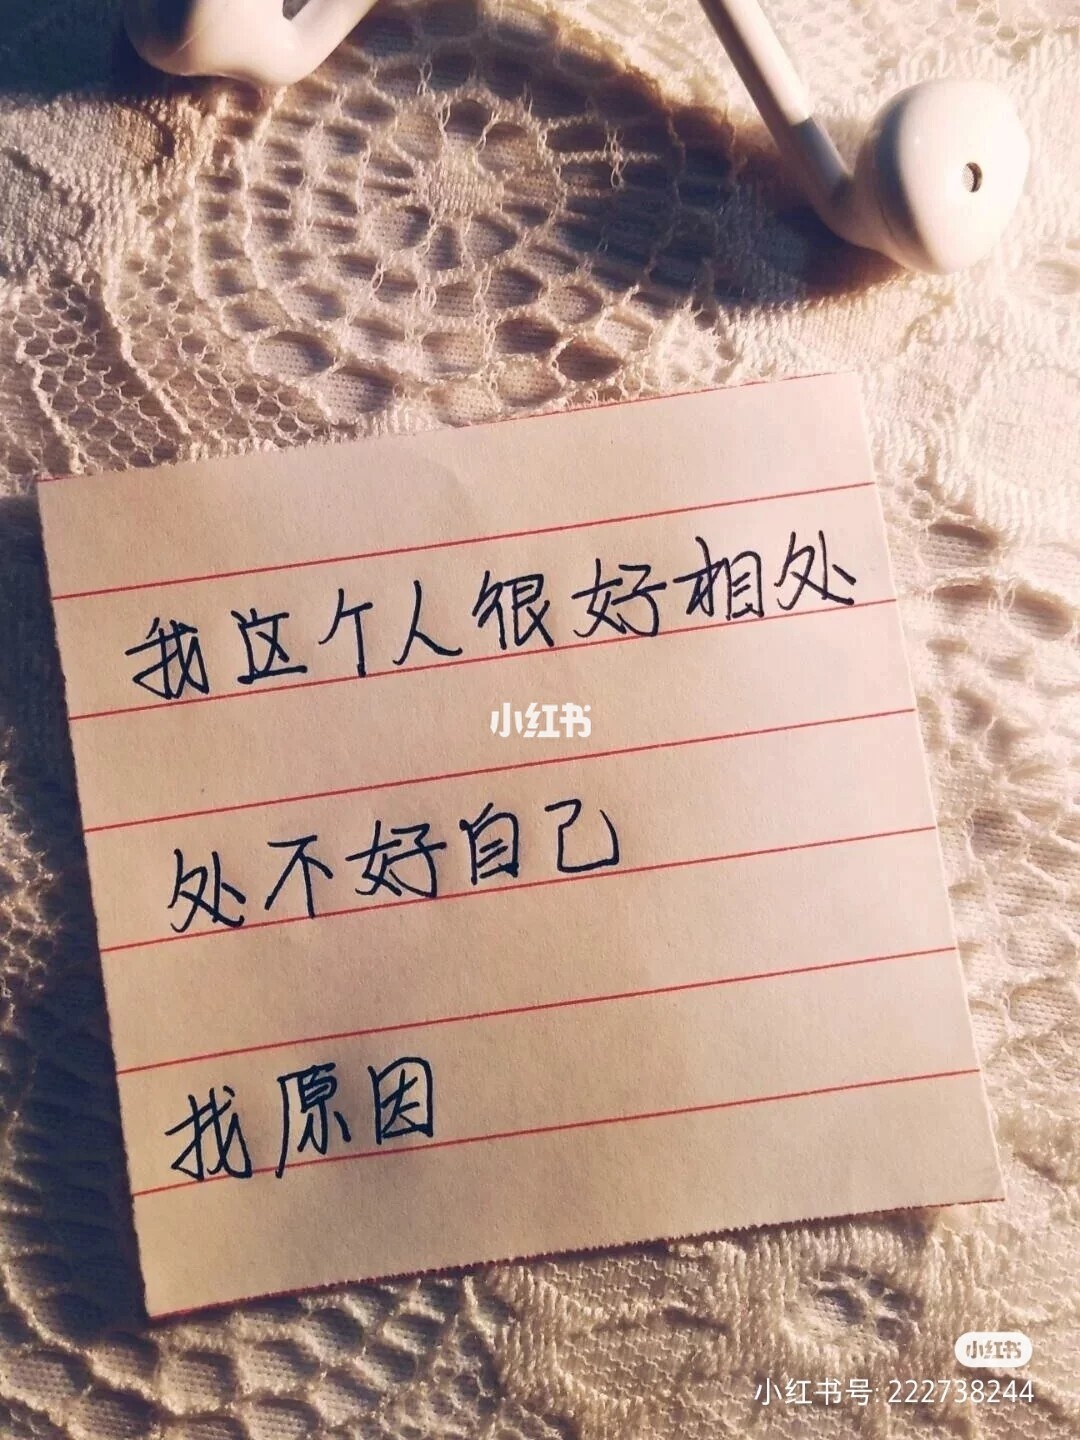 我这个人很好相处
小红书
处不好自己
找原因
小红书
小红书号: 222738244